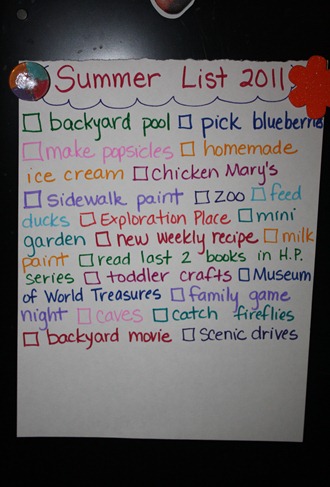 Summer List 2011
backyard pool pick blueberries
make popsicles homemade
ice cream Chicken Mary's
sidewalk paint zoo feed
ducks Exploration Place mini
garden new weekly recipe milk
paint read last 2 books in H.P.
series toddler crafts Museum
of World Treasures family game
night caves catch fireflies
backyard movie scenic drives